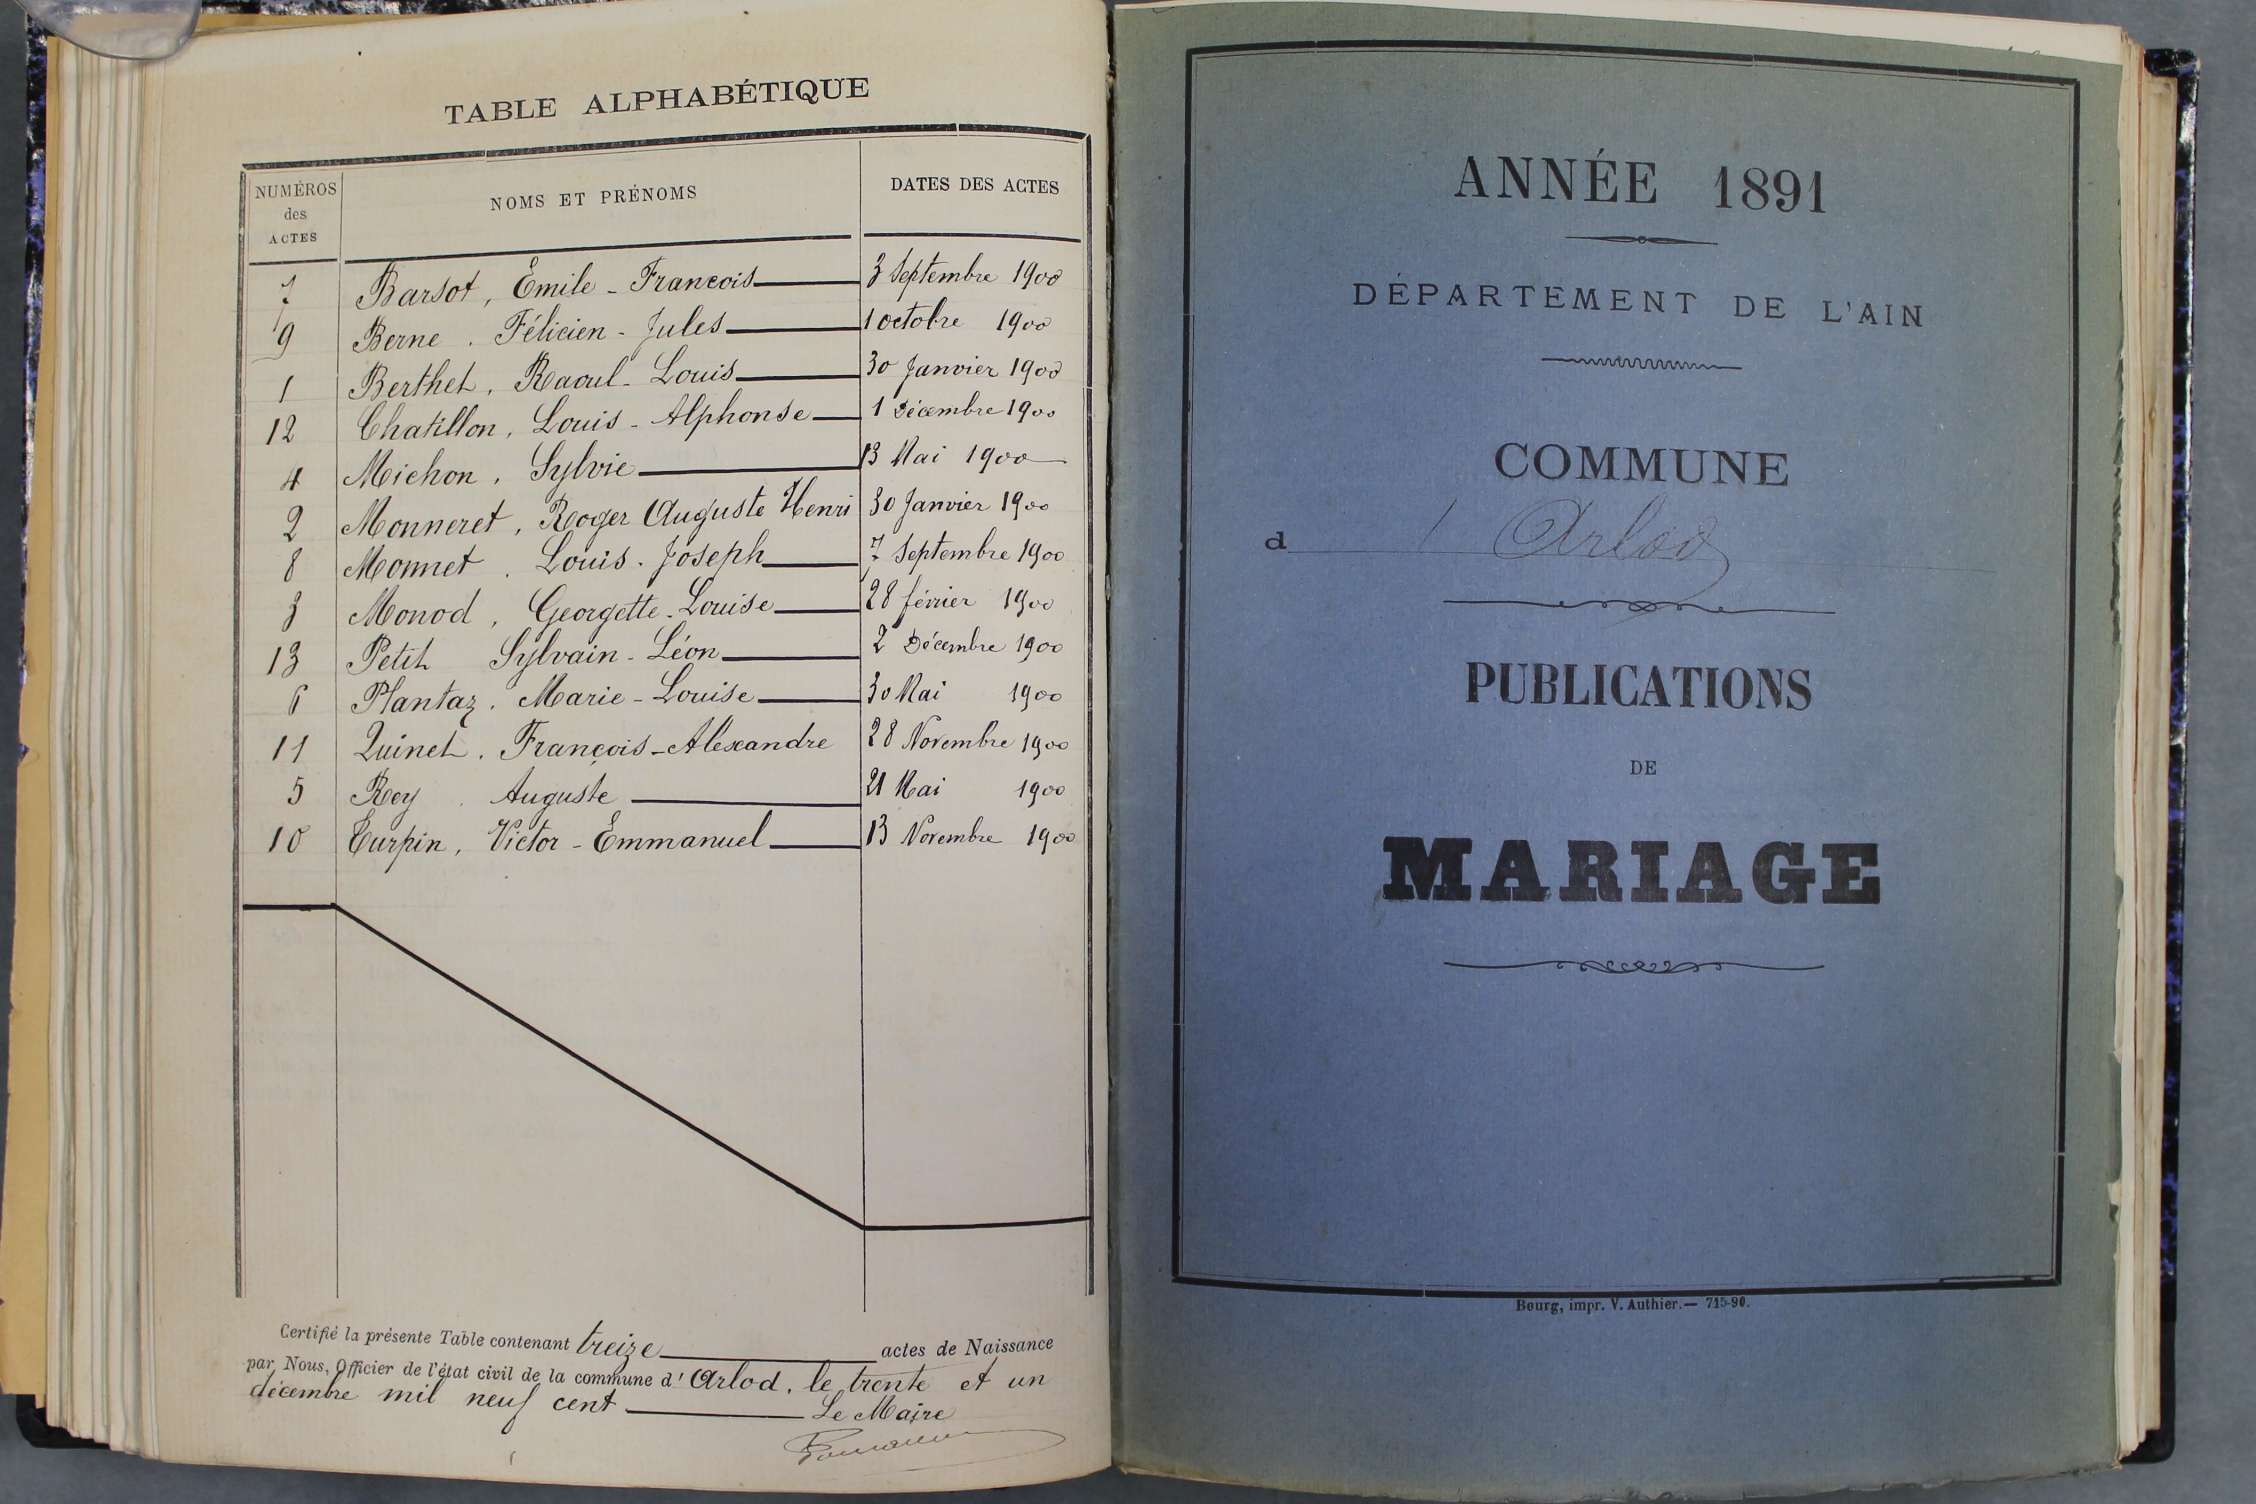 TABLE ALPHABÉTIQUE
NUMÉROS des ACTES NOMS ET PRÉNOMS DATES DES ACTES
7 Barsot, Émile - Francois 3 Septembre 1900
9 Berne. Félicien - Jules 1 octobre 1900
1 Berthet, Raoul - Louis 30 Janvier 1900
12 Chatillon, Louis - Alphonse 1 Décembre 1900
4 Michon, Sylvie 13 Mai 1900
2 Monneret, Roger Auguste Henri 30 Janvier 1900
8 Monnet. Louis - Joseph 7 Septembre 1900
3 Monod, Georgette - Louise 28 février 1900
13 Petit Sylvain - Léon 2 Décembre 1900
6 Plantaz. Marie - Louise 30 Mai 1900
11 Quinet. François - Alexandre 28 Novembre 1900
5 Rey. Auguste 21 Mai 1900
10 Turpin, Victor - Emmanuel 13 Novembre 1900
Certifié la présente Table contenant treize actes de Naissance
par Nous, Officier de l'état civil de la commune d' Arlod, le trente et un
décembre mil neuf cent Le Maire
ANNÉE 1891
DÉPARTEMENT DE L'AIN
COMMUNE
d ' Arlod
PUBLICATIONS
DE
MARIAGE
Bourg, impr. V. Authier. — 715-90.